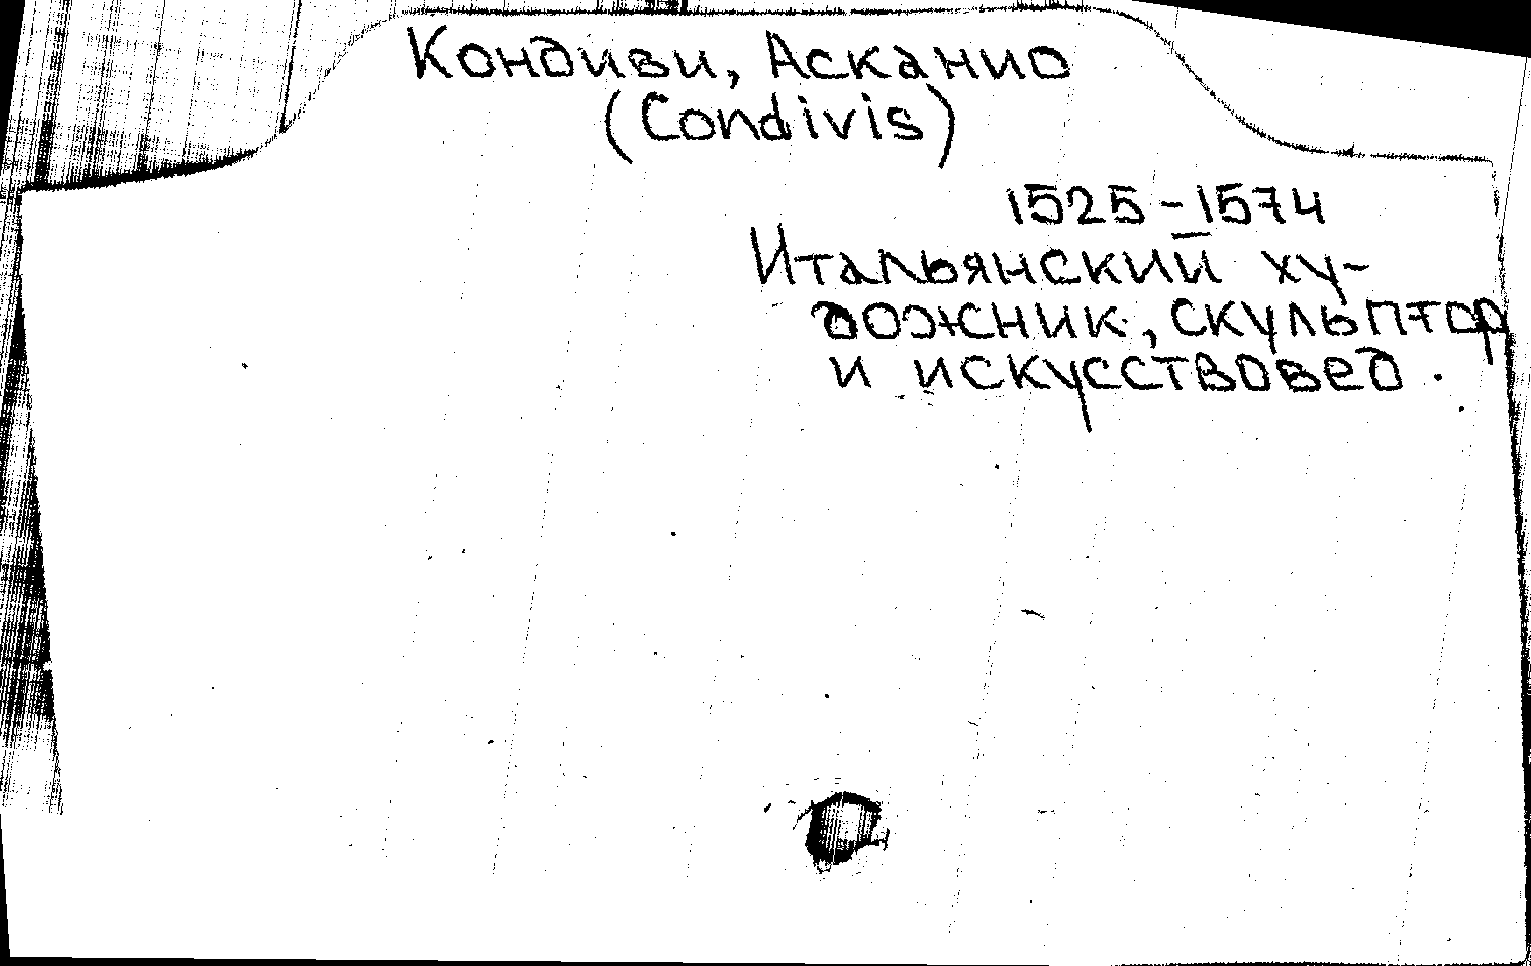 Кондиви, Асканио
(Condivis)
1525-1574
Итальянский ху-
дожник, скульптор
и искусствовед.